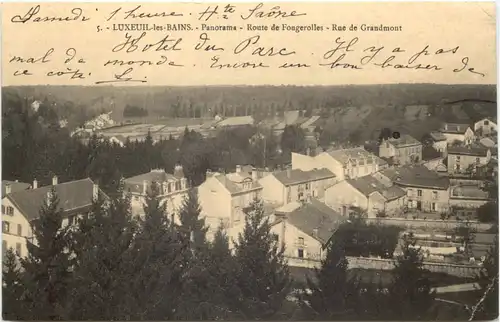 Samedi 1 heure Hte Saône
5. - LUXEUIL-les-BAINS. - Panorama - Route de Fougerolles - Rue de Grandmont
Hotel du Parc. Il y a pas
mal de monde. Encore un bon baiser de
ce coz.